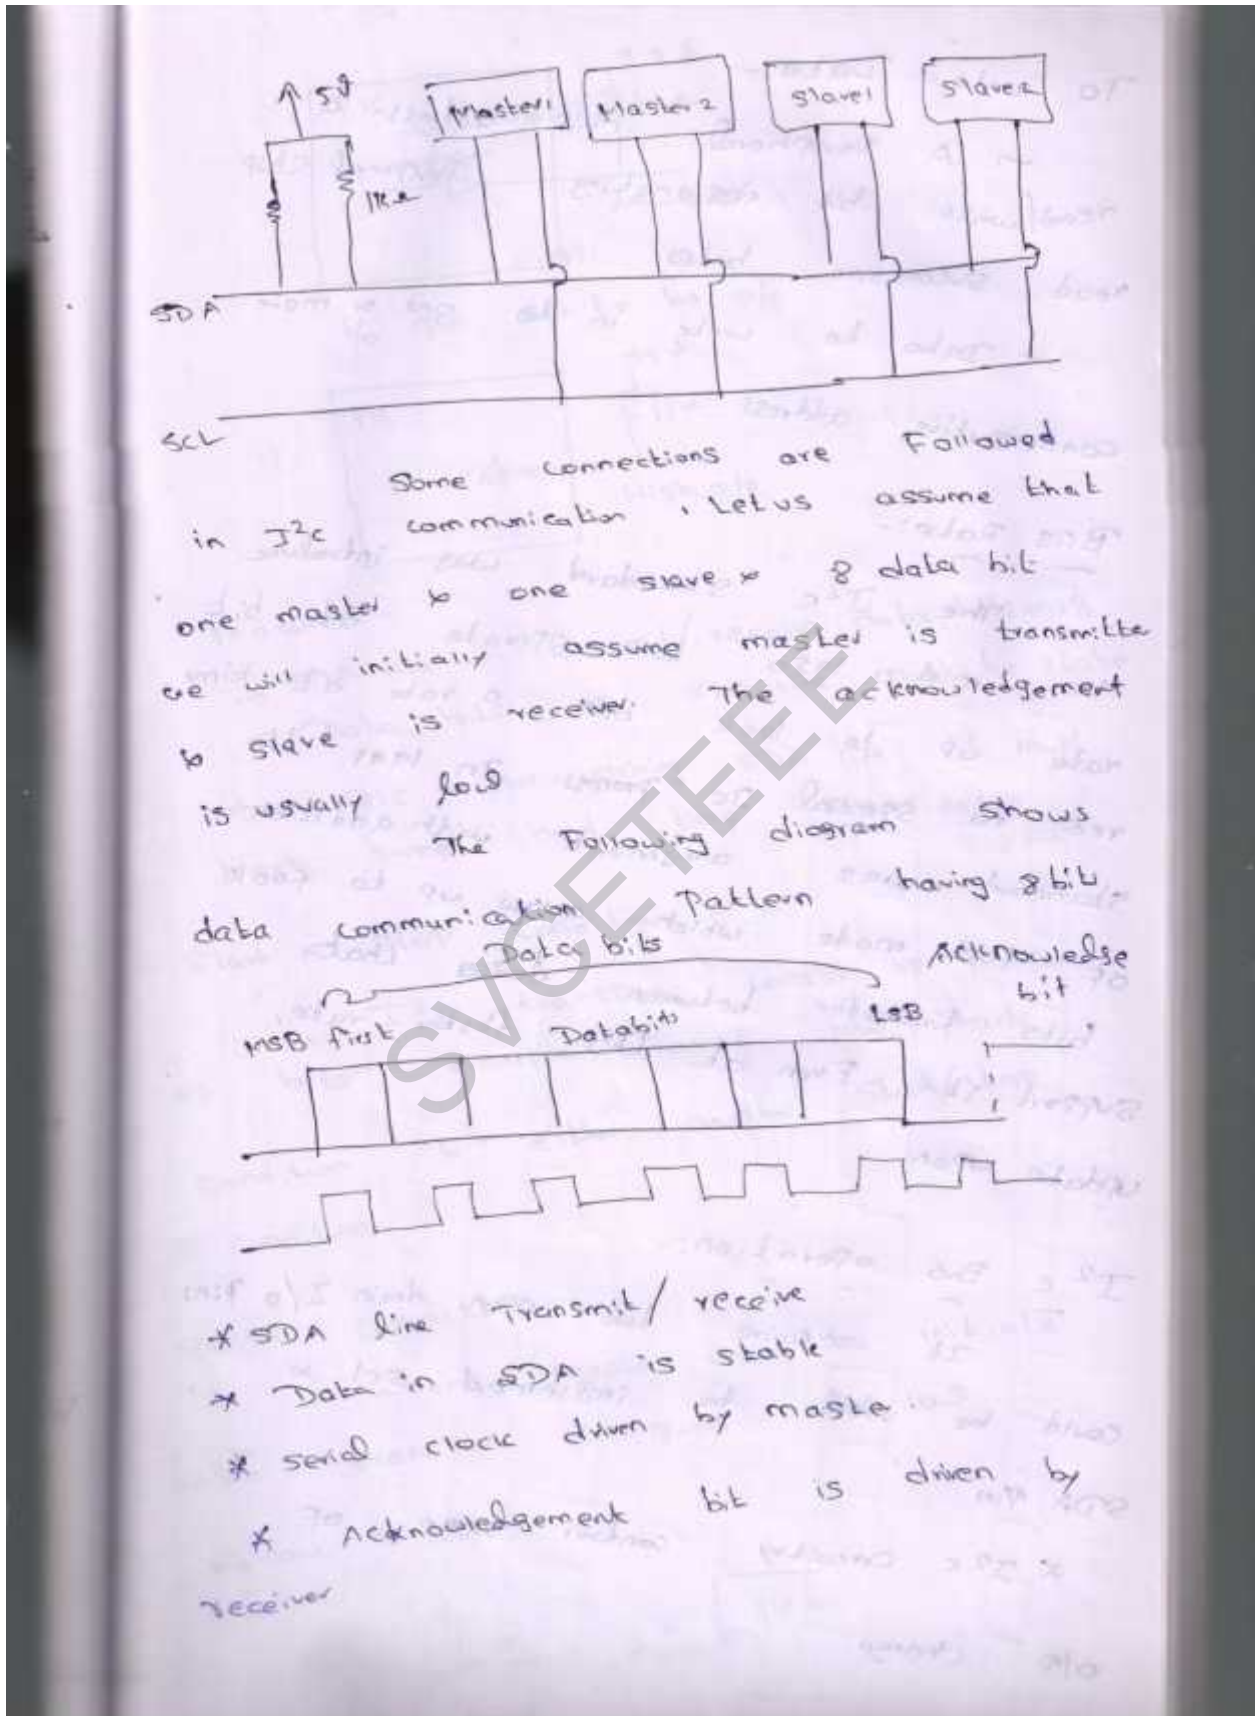 5V
Master1 Master 2 Slave1 Slave2
1KΩ
SDA
SCL
Some connections are Followed
in I²C communication. Let us assume that
one master & one slave & 8 data bit
we will initially assume master is transmitte
& slave is receiver. The acknowledgement
is usually low
The Following diagram shows
data communication Pattern having 8 bit
Data bits
Acknowledge
bit
MSB first Databits LSB
* SDA line Transmit/receive
* Data in SDA is stable
* serial clock driven by maste
* Acknowledgement bit is driven by
receiver
SVCETEEE